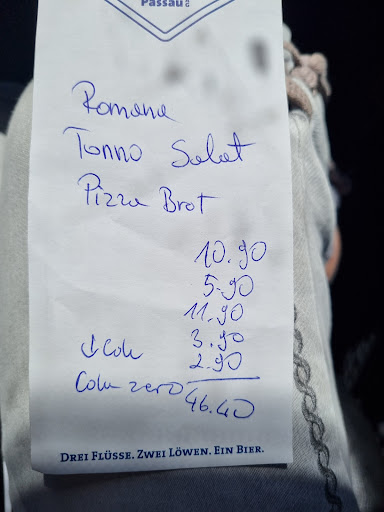 Passau
Romana
Tonno Salat
Pizza Brot
10.90
5.90
11.90
3.90
↓ Cola 2.90
Cola zero 46.40
DREI FLÜSSE. ZWEI LÖWEN. EIN BIER.